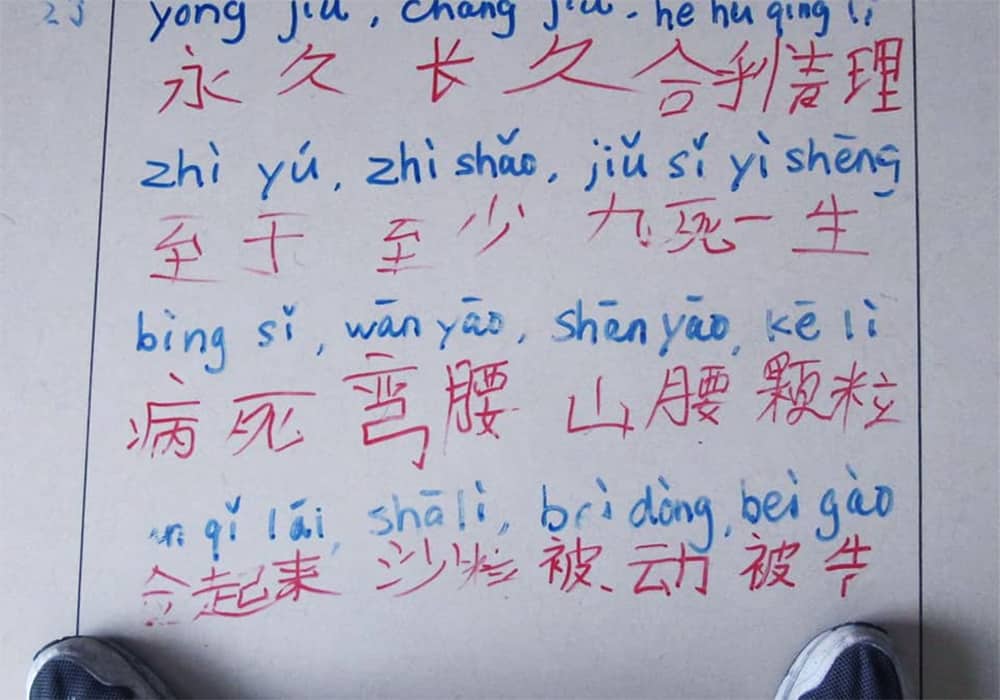 yong jiu, chang jiu. he hu qing li
永久 长久 合乎情理
zhì yú, zhì shǎo, jiǔ sǐ yì shēng
至于 至少 九死一生
bìng sǐ, wān yāo, shān yāo, kē lì
病死 弯腰 山腰 颗粒
qǐ lái, shā lì, bèi dòng, bèi gào
起来 沙粒 被动 被